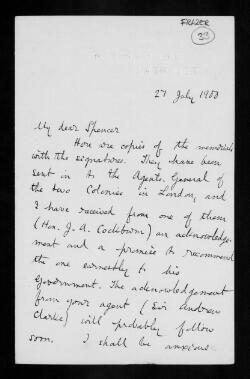 FRAZER
33
27 July 1900
My dear Spencer
Here are copies of the memorials
with the signatures. They have been
sent in to the Agents General of
the two Colonies in London, and
I have received from one of them
(Hon. J. A. Cockburn) an acknowledge-
ment and a promise to recommend
the one earnestly to his
Government. The acknowledgement
from your agent (Sir Andrew
Clarke) will probably follow
soon. I shall be anxious